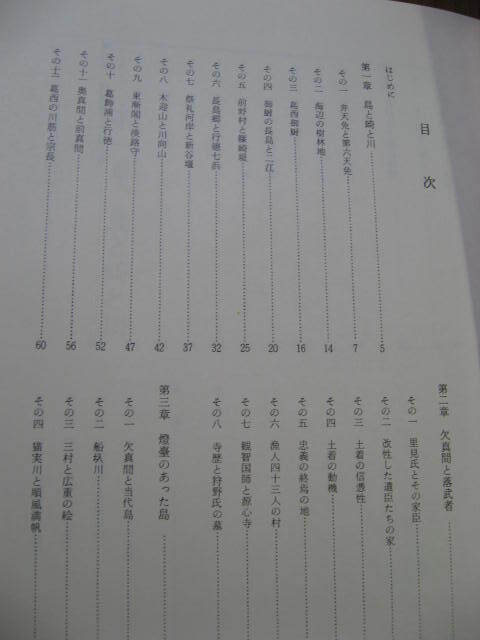 目次
はじめに
第一章 島と崎と川
その一 弁天免と第六天免 5
その二 海辺の樹林地 7
その三 葛西御厨 14
その四 御厨の長島と二江 16
その五 前野村と篠崎堤 20
その六 長島郷と行徳七浜 25
その七 祭礼河岸と新谷堰 32
その八 木迎山と川向山 37
その九 東漸閣と淡路守 42
その十 葛飾浦と行徳 47
その十一 奥真間と前真間 52
その十二 葛西の川筋と宗長 56
60
第二章 欠真間と落武者
その一 里見氏とその家臣
その二 改性した遺臣たちの家
その三 土着の信憑性
その四 土着の動機
その五 忠義の終焉の地
その六 漁人四十三人の村
その七 観智国師と源心寺
その八 寺歴と狩野氏の墓
第三章 燈臺のあった島
その一 欠真間と当代島
その二 船圦川
その三 三村と広重の絵
その四 猫実川と順風満帆